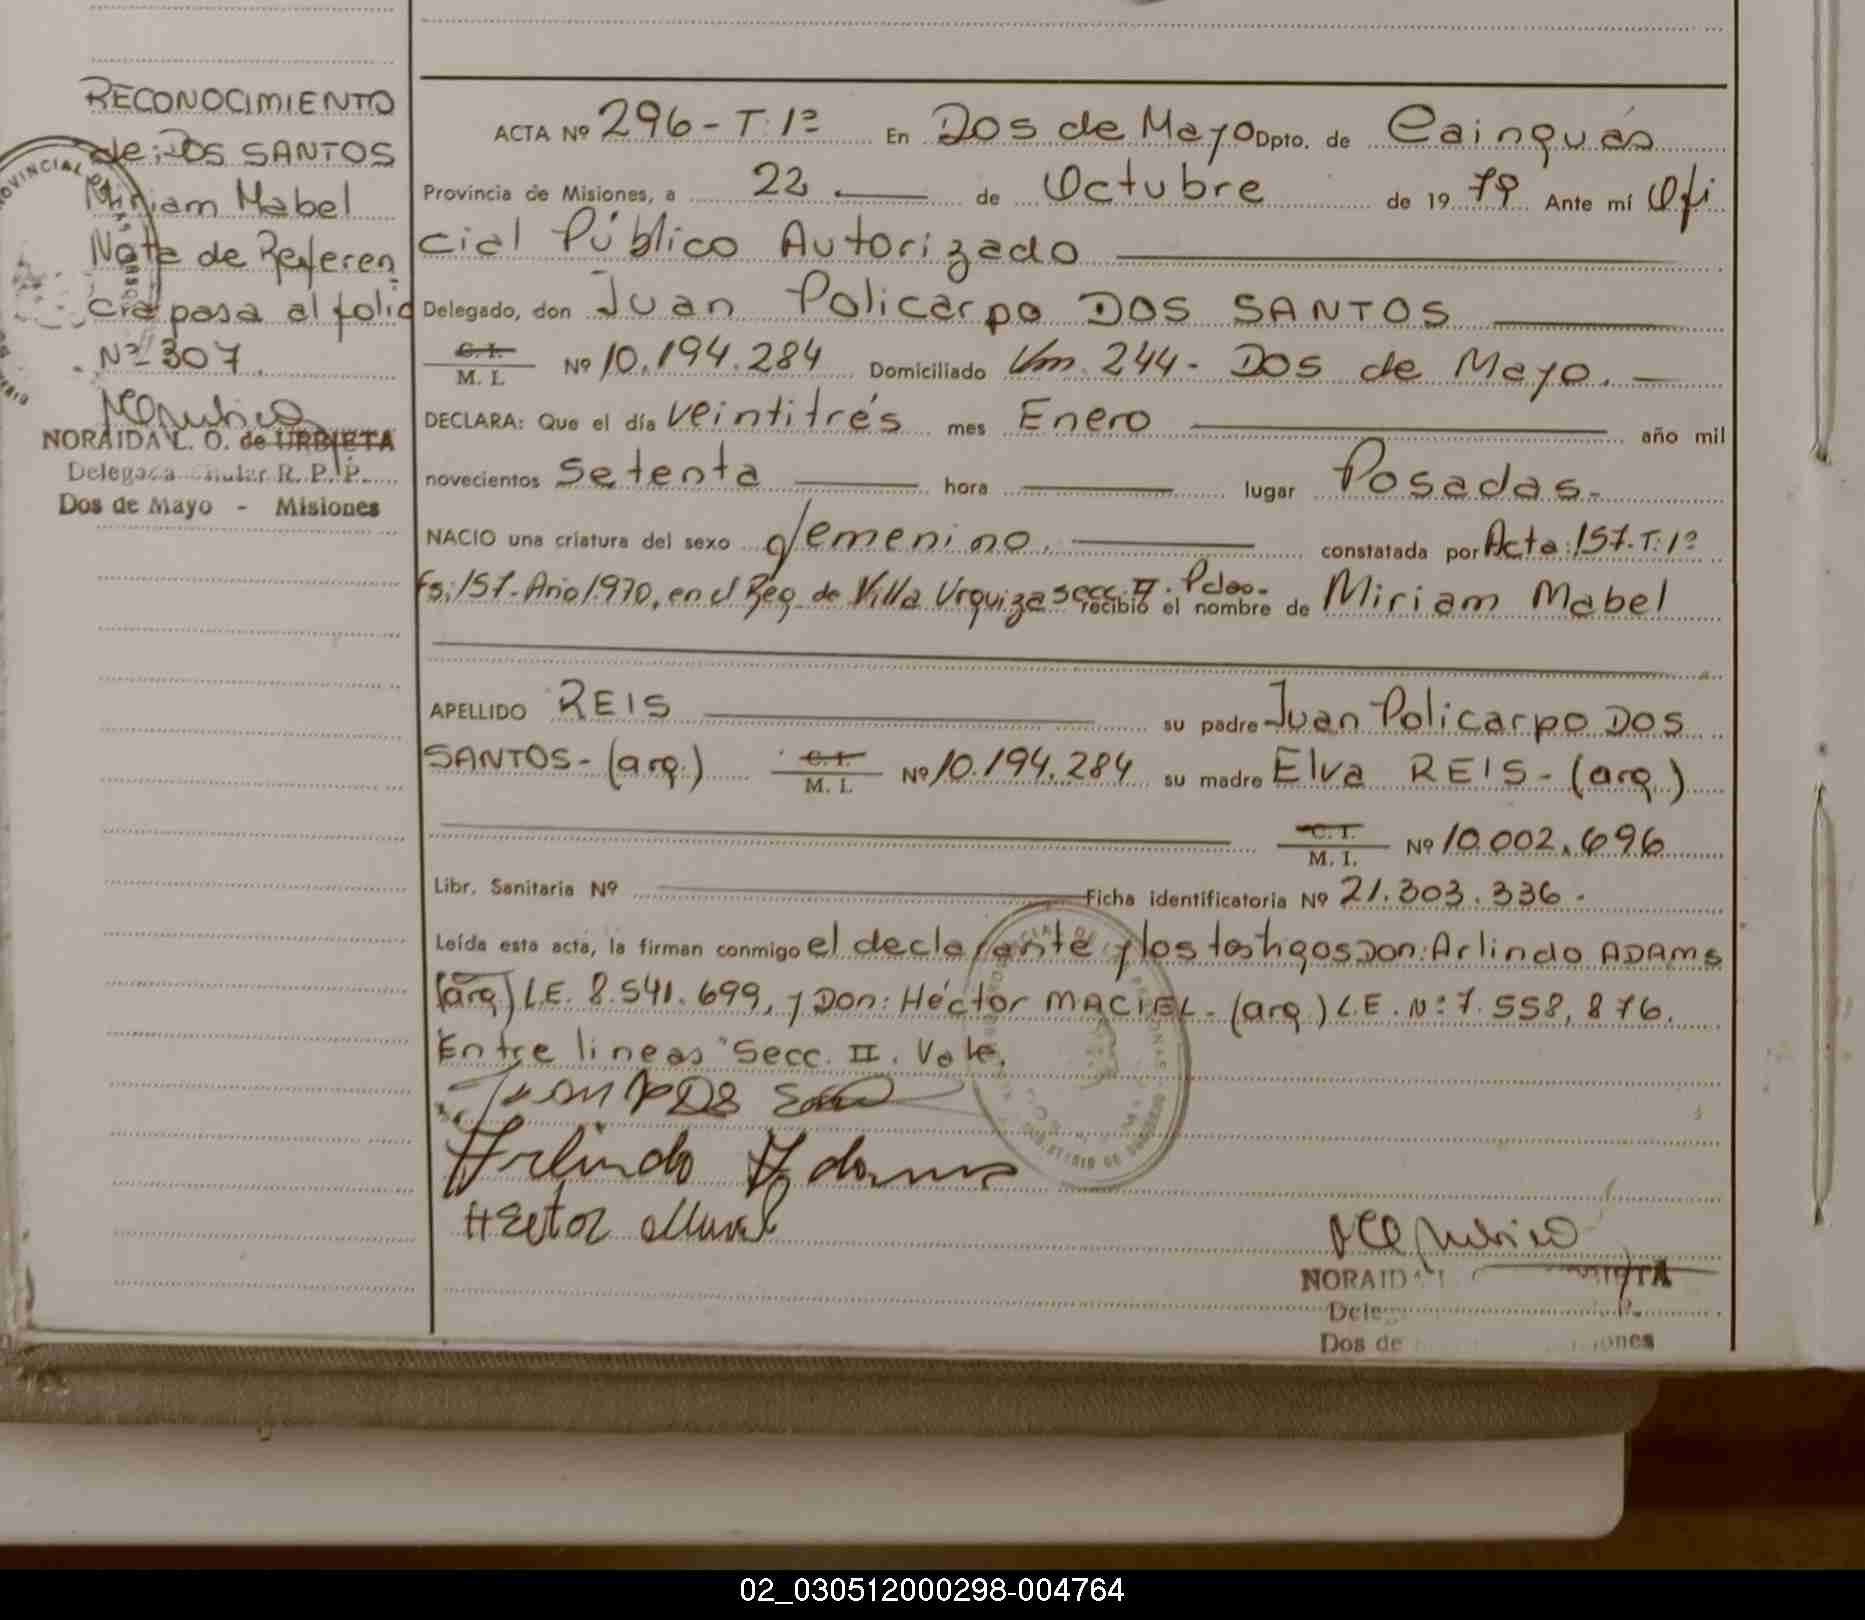 RECONOCIMIENTO
de: DOS SANTOS
Miriam Mabel
Nota de Referen
cia pasa al folio
Nº 307.
NORAIDA L. O. de URRIETA
Delegada Titular R. P. P.
Dos de Mayo - Misiones
ACTA Nº 296-T:1º En Dos de Mayo Dpto. de Cainguás
Provincia de Misiones, a 22 de Octubre de 19 79 Ante mí Ofi
cial Público Autorizado
Delegado, don Juan Policarpo DOS SANTOS
C.I.
M. I. Nº 10.194.284 Domiciliado Km. 244- Dos de Mayo.
DECLARA: Que el día veintitrés mes Enero año mil
novecientos setenta hora lugar Posadas.-
NACIO una criatura del sexo femenino. constatada por Acta:157.T:1º
Fs:157-Año1970, en el Reg. de Villa Urquiza Secc. II. Pdas.- recibió el nombre de Miriam Mabel
APELLIDO REIS su padre Juan Policarpo DOS
SANTOS-(arg.) C.I.
M. I. Nº 10.194.284 su madre Elva REIS-(arg.)
C.I.
M. I. Nº 10.002.696
Libr. Sanitaria Nº Ficha identificatoria Nº 21.303.336.-
Leída esta acta, la firman conmigo el declarante y los testigos Don: Arlindo ADAMS
(arg) L.E. 8.541.699, y Don: Héctor MACIEL-(arg.) L.E. N: 7.558,876.
Entre lineas "Secc. II. Vale.
Arlindo Adams
Hector
NORAIDA
Dos de
02_030512000298-004764